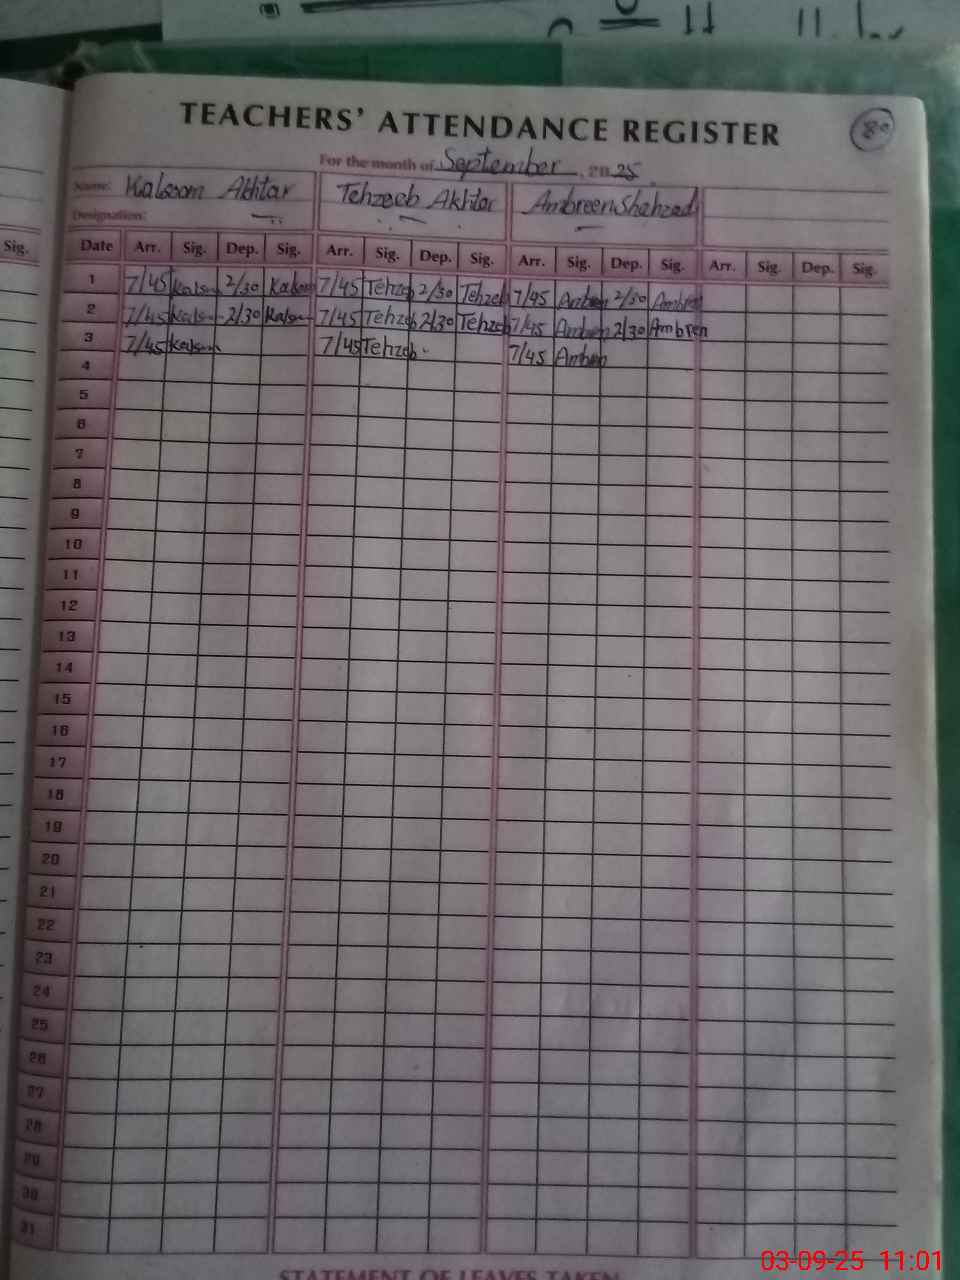 TEACHERS' ATTENDANCE REGISTER
80
For the month of September, 2025
Name: Kalsoom Akhtar Tehzeeb Akhtar Ambreen Shahzad
Designation:
Sig. Date Arr. Sig. Dep. Sig. Arr. Sig. Dep. Sig. Arr. Sig. Dep. Sig. Arr. Sig. Dep. Sig.
1 7/45 Kalsom 2/30 Kalsom 7/45 Tehzeb 2/30 Tehzeb 7/45 Ambren 2/30 Ambren
2 7/45 Kalsom 2/30 Kalsom 7/45 Tehzeb 2/30 Tehzeb 7/45 Ambren 2/30 Ambren
3 7/45 Kalsom 7/45 Tehzeb 7/45 Ambren
4
5
6
7
8
9
10
11
12
13
14
15
16
17
18
19
20
21
22
23
24
25
26
27
28
29
30
31
STATEMENT OF LEAVES TAKEN
03-09-25 11:01